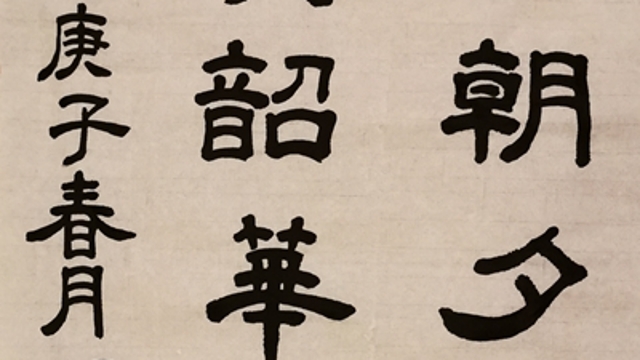 朝夕
韶華
庚子春月